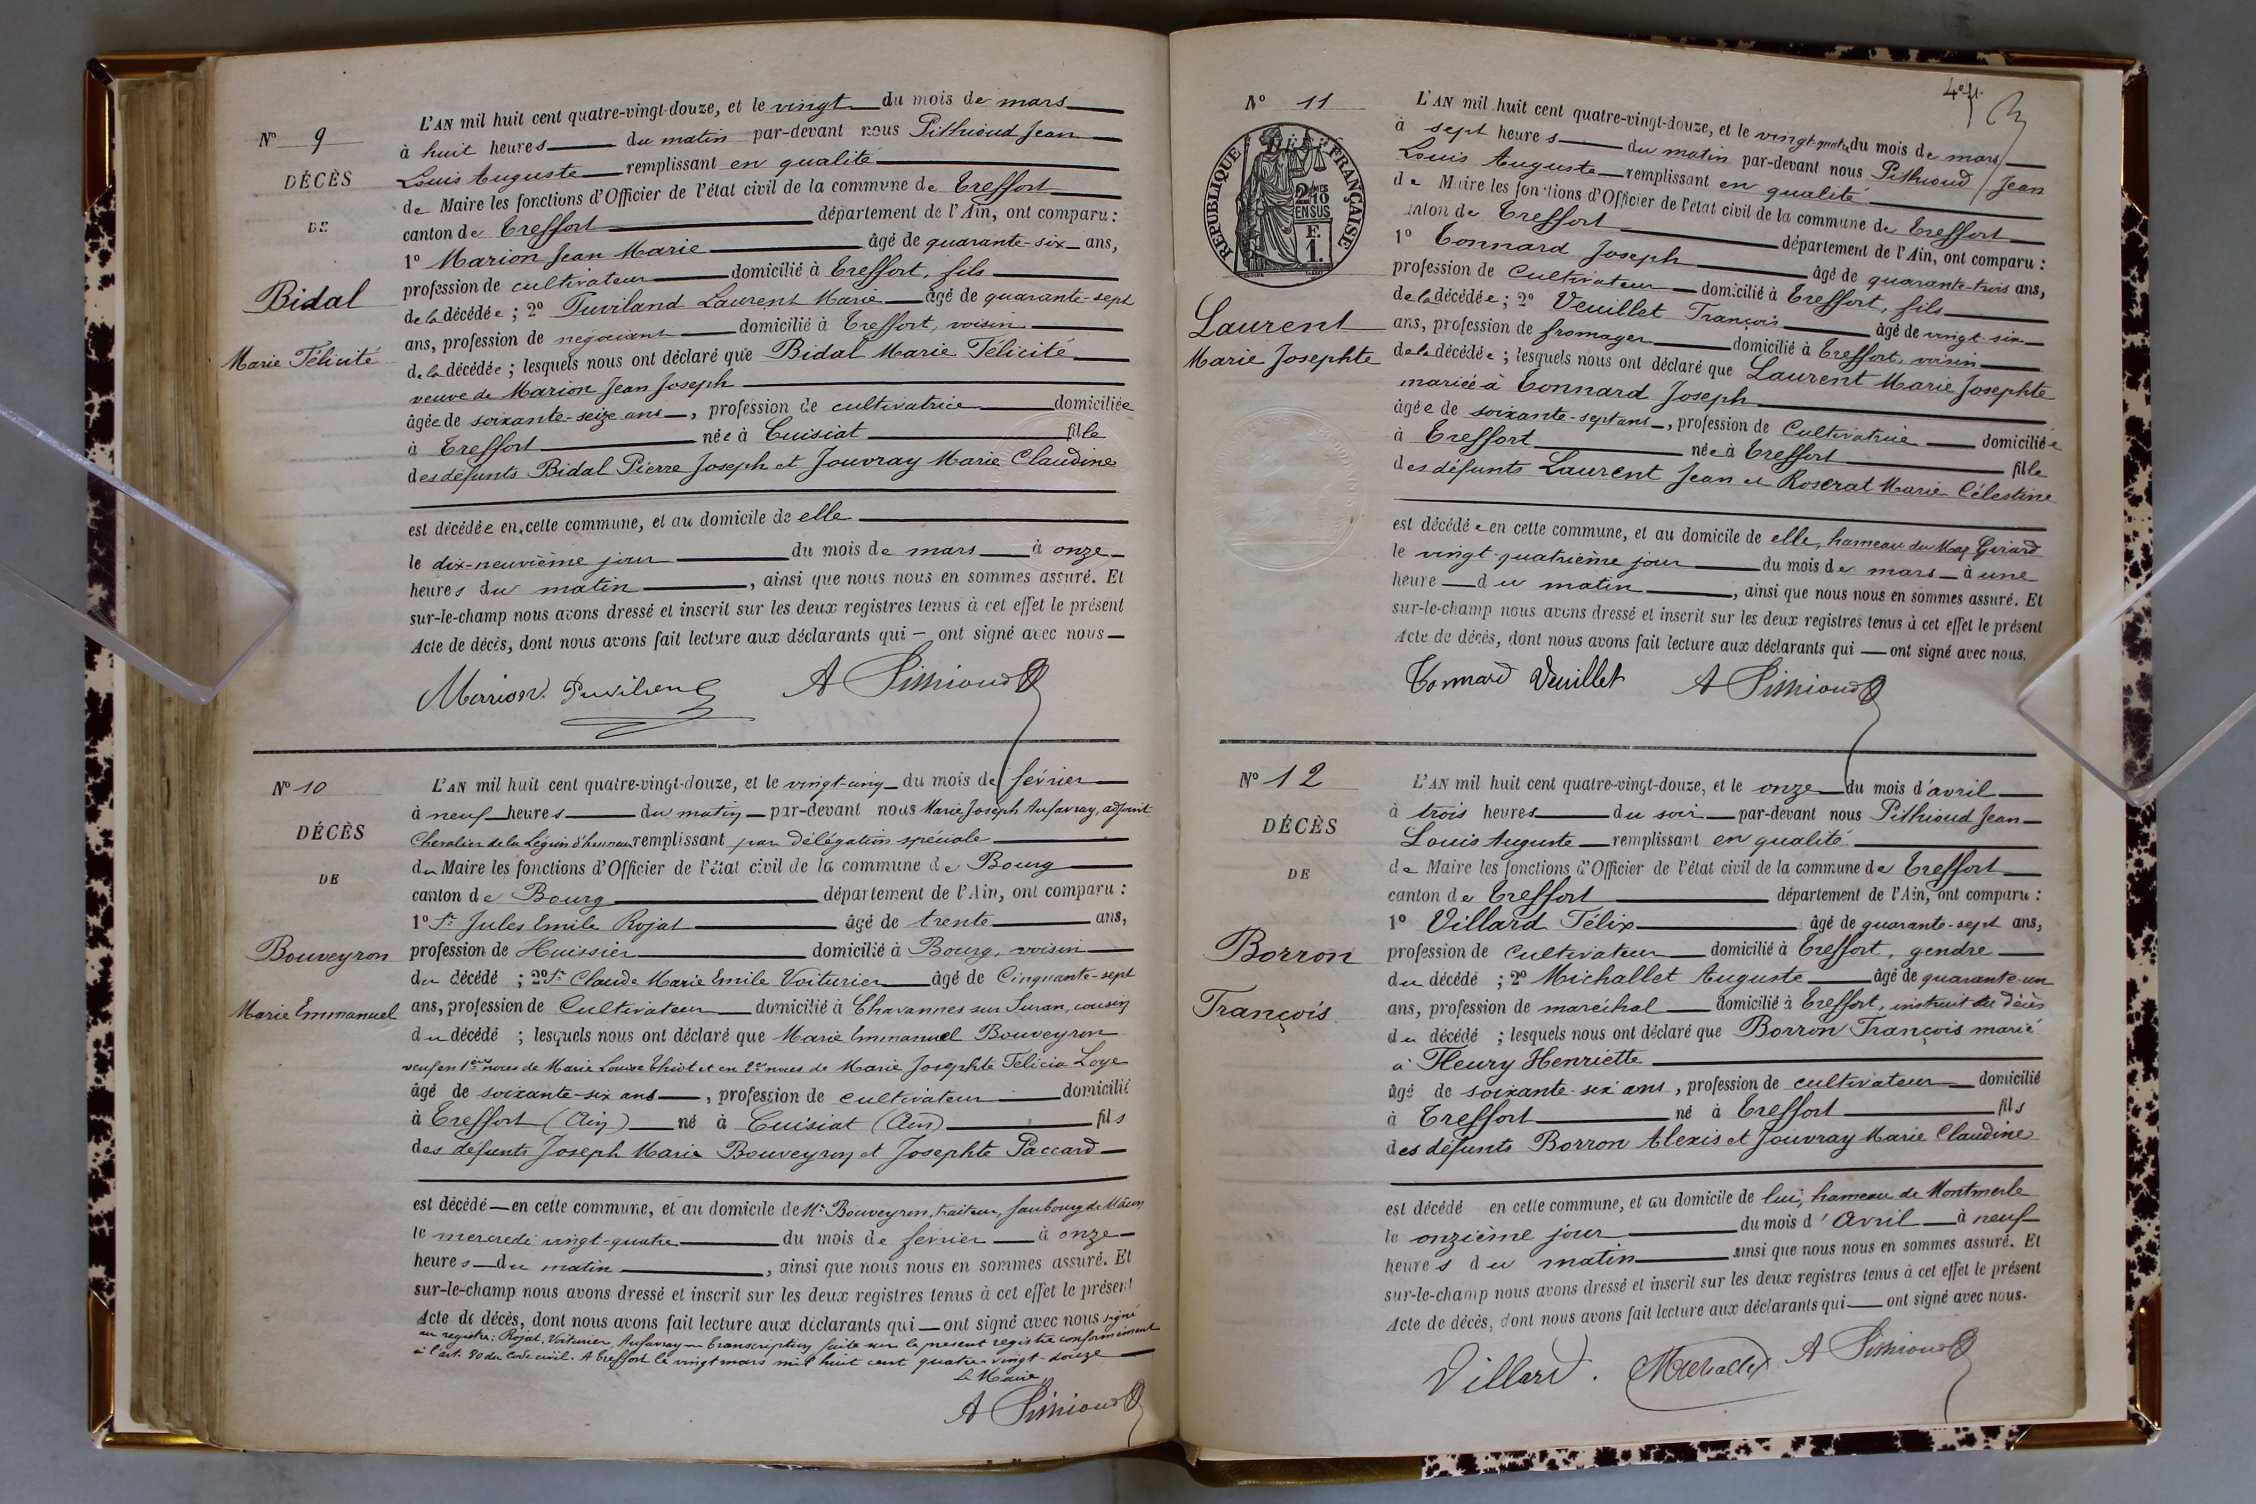 N° 9
DÉCÈS
DE
Bidal
Marie Félicité
L'AN mil huit cent quatre-vingt-douze, et le vingt du mois de mars
à huit heures du matin par-devant nous Pithioud Jean
Louis Auguste remplissant en qualité
de Maire les fonctions d'Officier de l'état civil de la commune de Treffort
canton de Treffort département de l'Ain, ont comparu :
1° Marion Jean Marie âgé de quarante-six ans,
profession de cultivateur domicilié à Treffort, fils
de la décédée ; 2° Puviland Laurent Marie âgé de quarante-sept
ans, profession de négociant domicilié à Treffort, voisin
de la décédée ; lesquels nous ont déclaré que Bidal Marie Félicité
veuve de Marion Jean Joseph
âgée de soixante-seize ans, profession de cultivatrice domiciliée
à Treffort née à Cuisiat fille
des défunts Bidal Pierre Joseph et Jouvray Marie Claudine
est décédée en cette commune, et au domicile de elle
le dix-neuvième jour du mois de mars à onze
heures du matin, ainsi que nous nous en sommes assuré. Et
sur-le-champ nous avons dressé et inscrit sur les deux registres tenus à cet effet le présent
Acte de décès, dont nous avons fait lecture aux déclarants qui — ont signé avec nous
Marion Puviland A Pithioud
N° 10
DÉCÈS
DE
Bouveyron
Marie Emmanuel
L'AN mil huit cent quatre-vingt-douze, et le vingt-cinq du mois de février
à neuf heures du matin par-devant nous Marie Joseph Aufavray, adjoint
Chevalier de la Légion d'honneur remplissant par délégation spéciale
du Maire les fonctions d'Officier de l'état civil de la commune de Bourg
canton de Bourg département de l'Ain, ont comparu :
1° Sr Jules Emile Rojat âgé de trente ans,
profession de Huissier domicilié à Bourg, voisin
du décédé ; 2° Sr Claude Marie Emile Voiturier âgé de Cinquante-sept
ans, profession de Cultivateur domicilié à Chavannes sur Suran, cousin
du décédé ; lesquels nous ont déclaré que Marie Emmanuel Bouveyron
veuf en 1ères noces de Marie Louise Thiot et en 2es noces de Marie Josephte Felicia Loye
âgé de soixante-six ans, profession de cultivateur domicilié
à Treffort (Ain) né à Cuisiat (Ain) fils
des défunts Joseph Marie Bouveyron et Josephte Paccard
est décédé en cette commune, et au domicile de Mr Bouveyron, traiteur, faubourg de Mâcon
le mercredi vingt-quatre du mois de février à onze
heures du matin, ainsi que nous nous en sommes assuré. Et
sur-le-champ nous avons dressé et inscrit sur les deux registres tenus à cet effet le présent
Acte de décès, dont nous avons fait lecture aux déclarants qui — ont signé avec nous signé
au registre : Rojat, Voiturier, Aufavray — Transcription faite sur le présent registre conformément
à l'art. 80 du Code civil. A Treffort le vingt mars mil huit cent quatre-vingt-douze
Le Maire,
A Pithioud
4e ft.
N° 11
RÉPUBLIQUE FRANÇAISE
2/10 EN SUS
F. 1.
Laurent
Marie Josephte
L'AN mil huit cent quatre-vingt-douze, et le vingt-quatre du mois de mars
à sept heures du matin par-devant nous Pithioud Jean
Louis Auguste remplissant en qualité
de Maire les fonctions d'Officier de l'état civil de la commune de Treffort
canton de Treffort département de l'Ain, ont comparu :
1° Tonnard Joseph âgé de quarante-trois ans,
profession de Cultivateur domicilié à Treffort, fils
de la décédée ; 2° Veuillet François âgé de vingt-six
ans, profession de fromager domicilié à Treffort, voisin
de la décédée ; lesquels nous ont déclaré que Laurent Marie Josephte
mariée à Tonnard Joseph
âgée de soixante-sept ans, profession de Cultivatrice domiciliée
à Treffort née à Treffort fille
des défunts Laurent Jean et Roserat Marie Célestine
est décédée en cette commune, et au domicile de elle, hameau du Mas Girard
le vingt-quatrième jour du mois de mars à une
heure du matin, ainsi que nous nous en sommes assuré. Et
sur-le-champ nous avons dressé et inscrit sur les deux registres tenus à cet effet le présent
Acte de décès, dont nous avons fait lecture aux déclarants qui — ont signé avec nous.
Tonnard Veuillet A Pithioud
N° 12
DÉCÈS
DE
Borron
François
L'AN mil huit cent quatre-vingt-douze, et le onze du mois d'avril
à trois heures du soir par-devant nous Pithioud Jean
Louis Auguste remplissant en qualité
de Maire les fonctions d'Officier de l'état civil de la commune de Treffort
canton de Treffort département de l'Ain, ont comparu :
1° Villard Félix âgé de quarante-sept ans,
profession de cultivateur domicilié à Treffort, gendre
du décédé ; 2° Michallet Auguste âgé de quarante-un
ans, profession de maréchal domicilié à Treffort, instruit du décès
du décédé ; lesquels nous ont déclaré que Borron François marié
à Fleury Henriette
âgé de soixante-six ans, profession de cultivateur domicilié
à Treffort né à Treffort fils
des défunts Borron Alexis et Jouvray Marie Claudine
est décédé en cette commune, et au domicile de lui, hameau de Montmerle
le onzième jour du mois d'Avril à neuf
heures du matin ainsi que nous nous en sommes assuré. Et
sur-le-champ nous avons dressé et inscrit sur les deux registres tenus à cet effet le présent
Acte de décès, dont nous avons fait lecture aux déclarants qui — ont signé avec nous.
Villard. Michallet A Pithioud